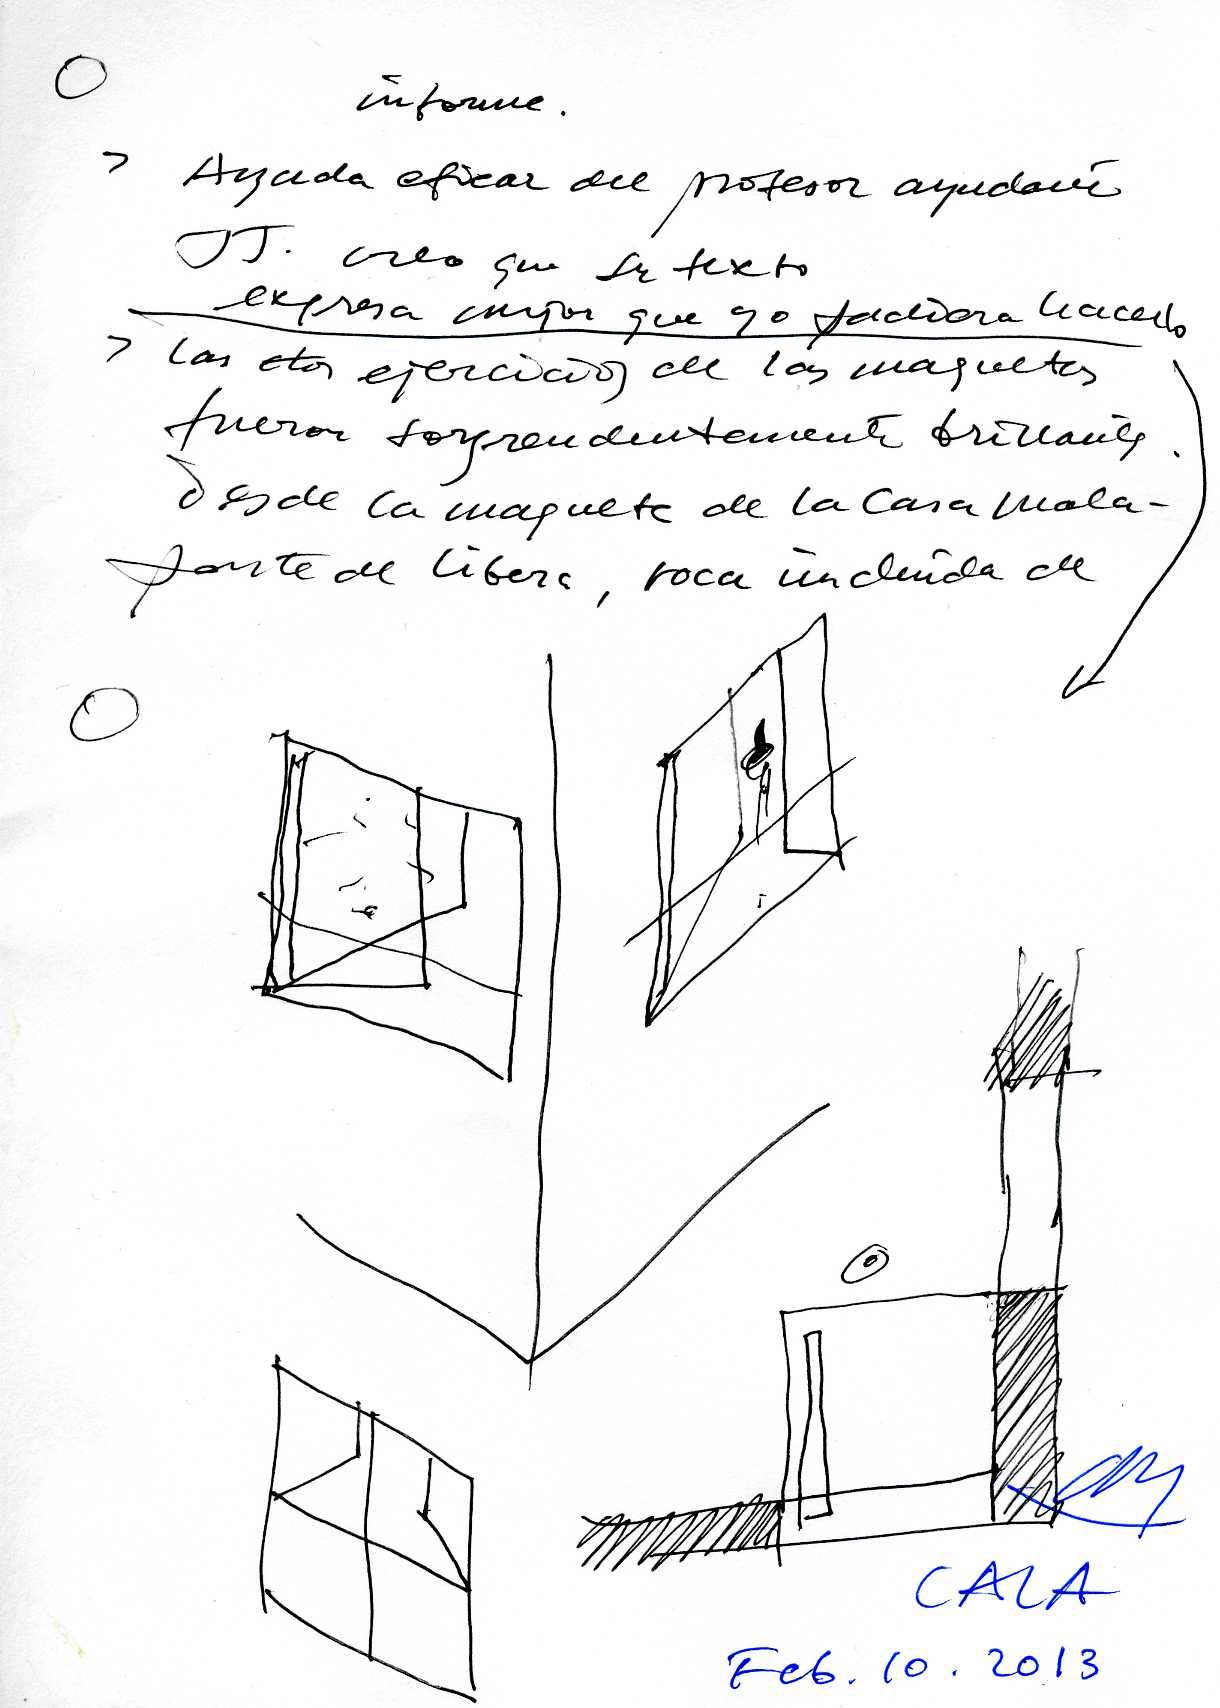 informe.
> Ayuda eficaz del profesor ayudante
JT. creo que su texto
expresa mejor que yo pudiera hacerlo
> Las dos ejercicios de las maquetas
fueron sorprendentemente brillantes.
Desde la maqueta de la Casa Mala-
parte de Libera, roca incluida de
CALA
Feb. 10. 2013